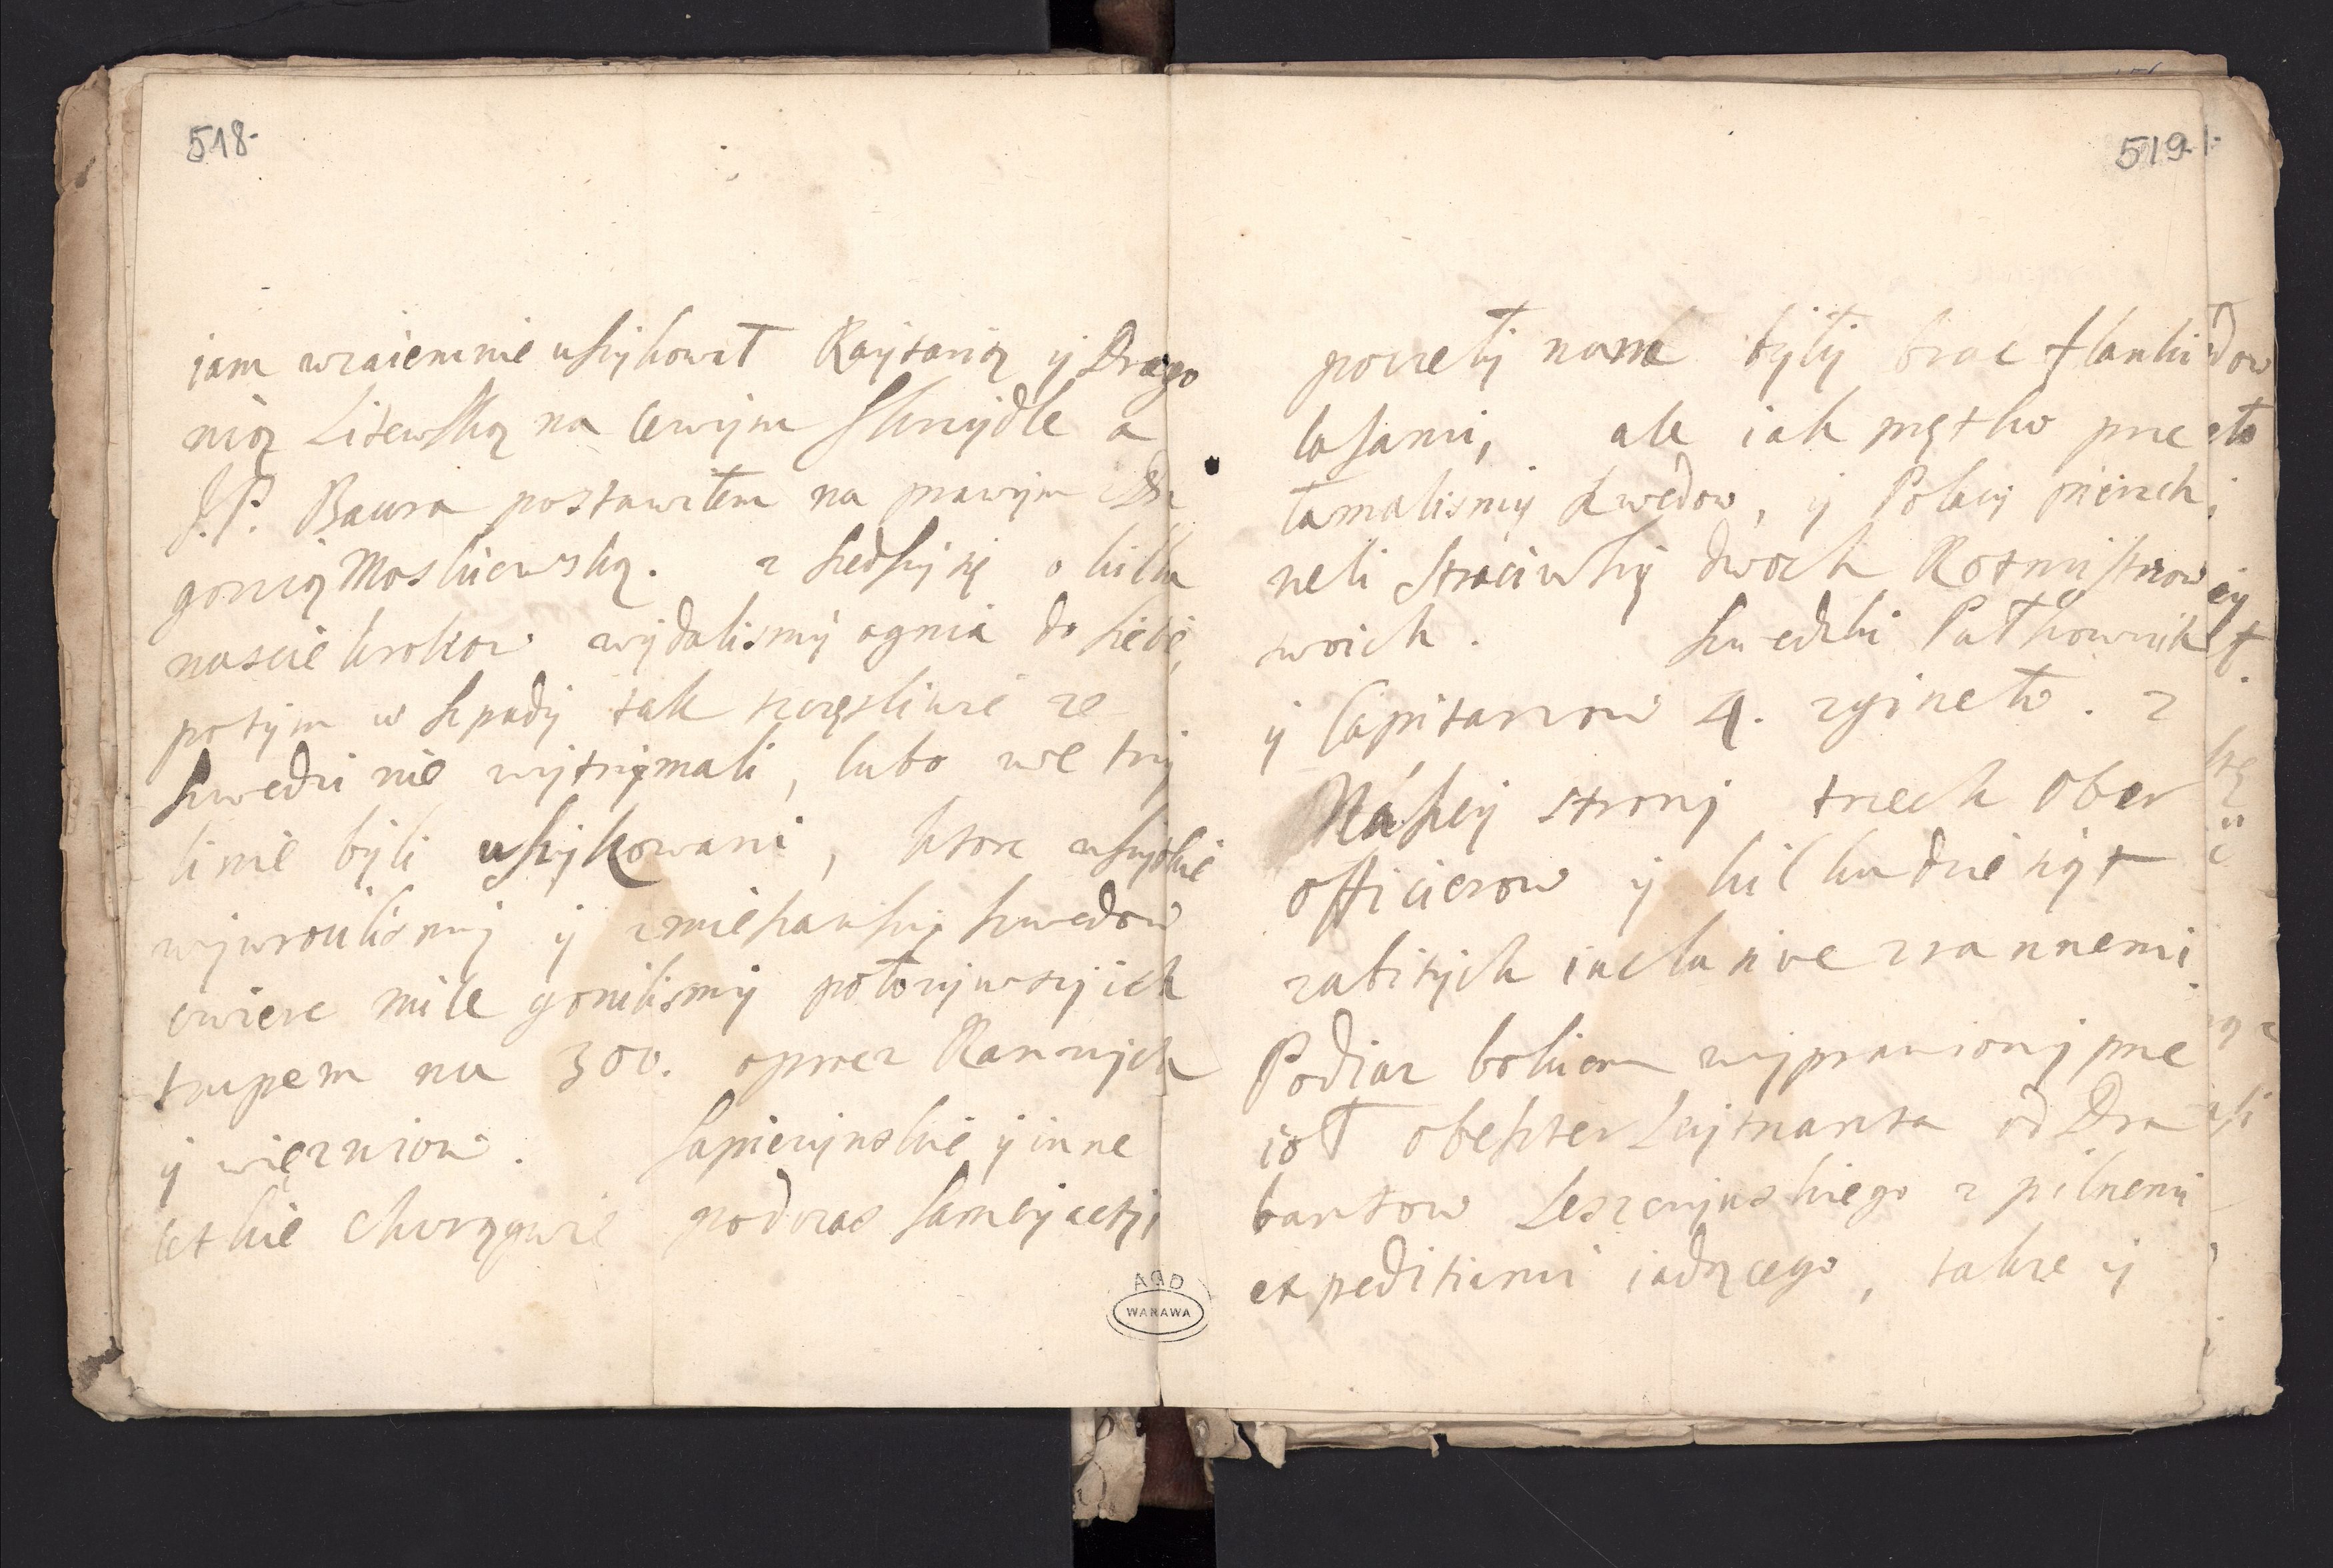 518.
jam wzaiemnie uszykował Raytarią y Drago
nią Litewską na lewym skrzydle a
J.P. Baura postawiłem na prawym z Dra
gonią Moskiewską. zszedszy się o kilka
nascie krokow wydalismy ognia do siebie,
potym w szpady tak szczęsliwie ze
szwedzi nie wytrzymali, lubo we trzy
linie byli uszykowani, ktore wszystkie
wywrocilismy y zmieszawszy szwedow
cwierc mile gonilismy położywszy ich
trupem na 300. oprocz Rannych
y więzniow. Sapiezynskie y inne
letkie chorągwie podczas samey actyi
519.
poczeły nam były brac flanki
lasami, ale iak prętko prze
łamalismy szwedow, y Polacy pierzch
neli straciwszy dwoch Rotmistrzow
swoich. Szwedzki Pułkownik
y Capitanow 4. zgineło. z
Naszey strony trzech Ober
officierow y kilkudziesiąt
zabitych inclusive z rannemi.
Podiazd bokiem wyprawiony prze
ioł obeszter Lejtnanta od Dra
bantow Leszczynskiego z pilnemi
expeditiami iadącego, takze y
AGAD
WARSZAWA